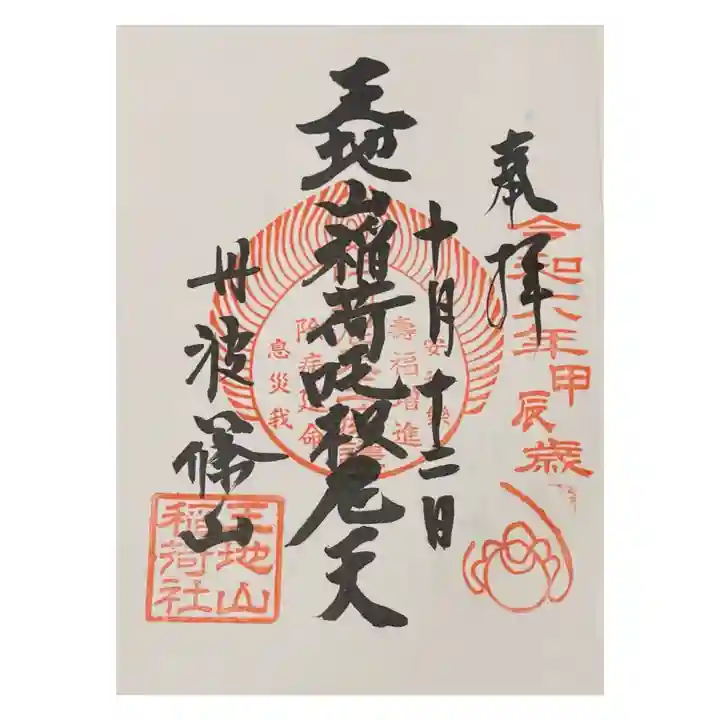 奉拝
令和六年甲辰歳
十月十二日
王地山稲荷吒枳尼天
安
壽福増進
除病延命
息災我
丹波篠山
王地山稲荷社